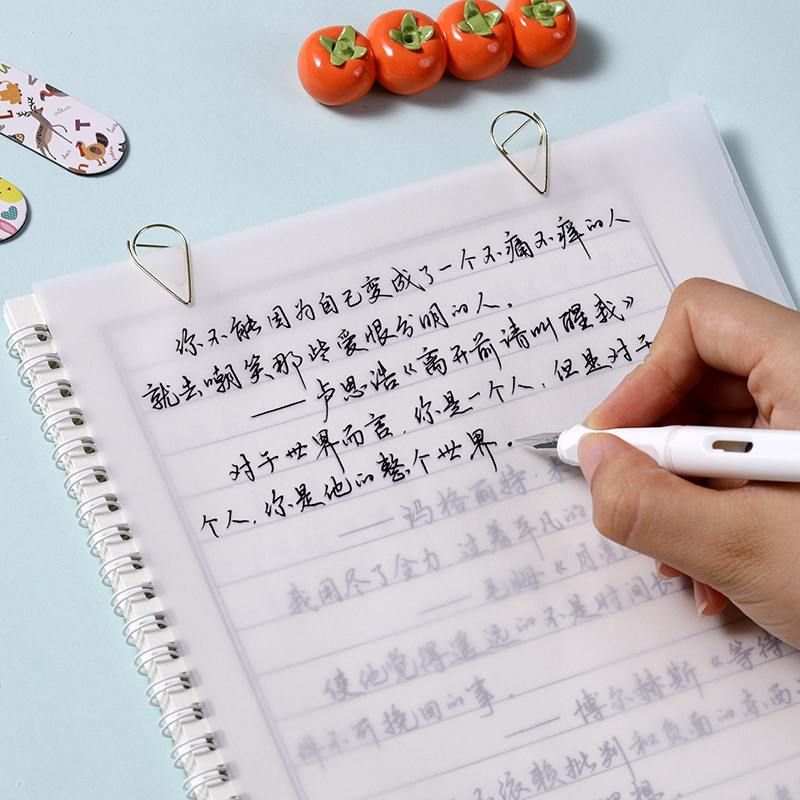 你不能因为自己变成了一个不痛不痒的人
就去嘲笑那些爱恨分明的人。
——卢思浩《离开前请叫醒我》
对于世界而言，你是一个人；但是对于
个人，你是他的整个世界。
——玛格丽特·
我用尽了全力，过着平凡的
——毛姆《月亮
使他觉得遥远的不是时间长
不可挽回的事。
——博尔赫斯《等待
依赖批判和负面的东西